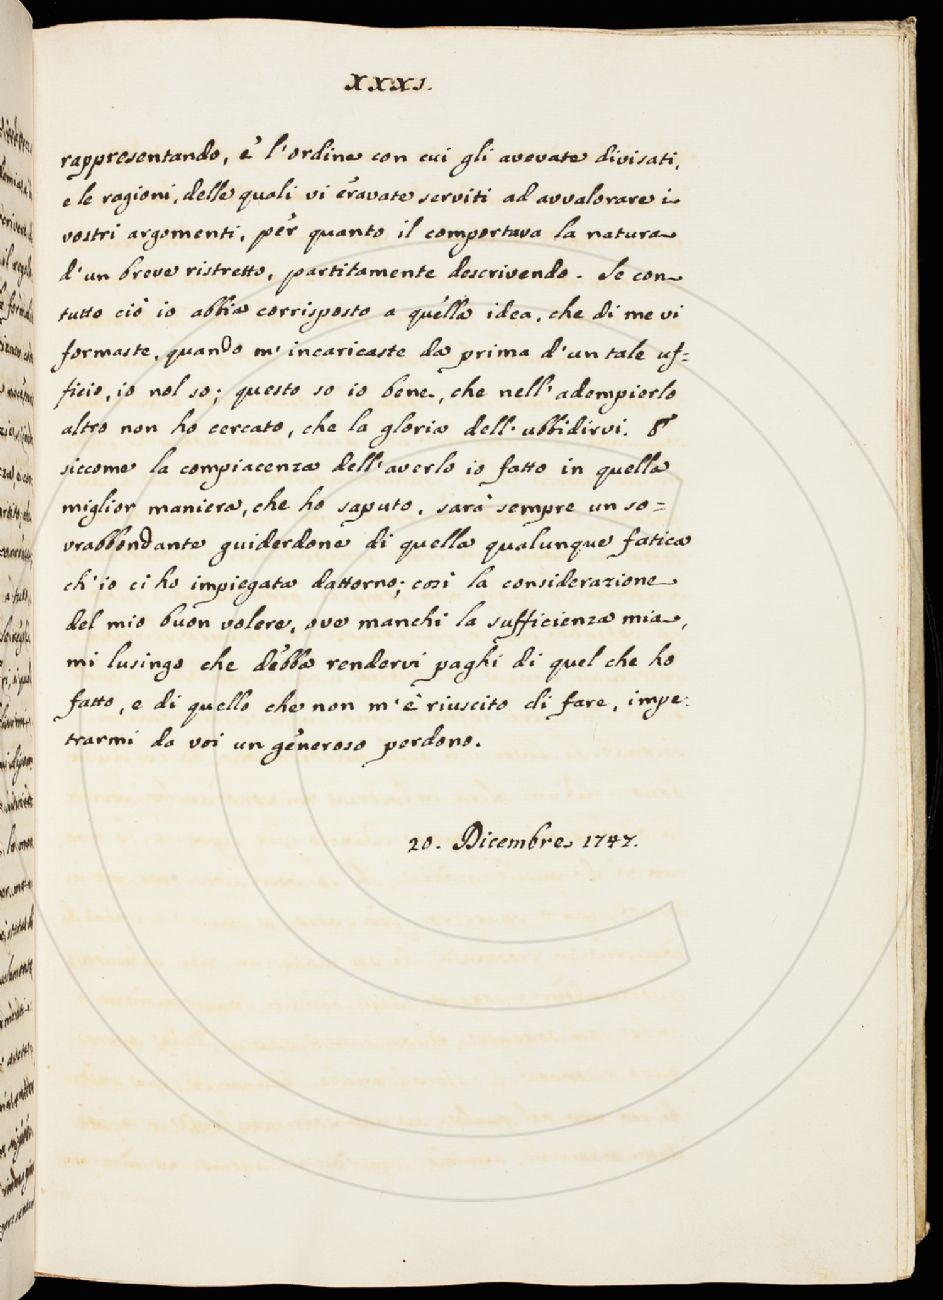 XXXI.
rappresentando, e l'ordine con cui gli avevate divisati,
e le ragioni, delle quali vi eravate serviti ad avvalorare i
vostri argomenti, per quanto il comportava la natura
d'un breve ristretto, partitamente descrivendo. Se con
tutto ciò io abbia corrisposto a quella idea, che di me vi
formaste, quando m'incaricaste da prima d'un tale uf=
ficio, io nol so; questo so io bene, che nell'adempierlo
altro non ho cercato, che la gloria dell'ubbidirvi. E
siccome la compiacenza dell'averlo io fatto in quella
miglior maniera, che ho saputo, sarà sempre un so=
vrabbondante guiderdone di quella qualunque fatica
ch'io ci ho impiegata dattorno; così la considerazione
del mio buon volere, ove manchi la sufficienza mia,
mi lusingo che debba rendervi paghi di quel che ho
fatto, e di quello che non m'è riuscito di fare, impe:
trarmi da voi un generoso perdono.
20. Dicembre 1747.